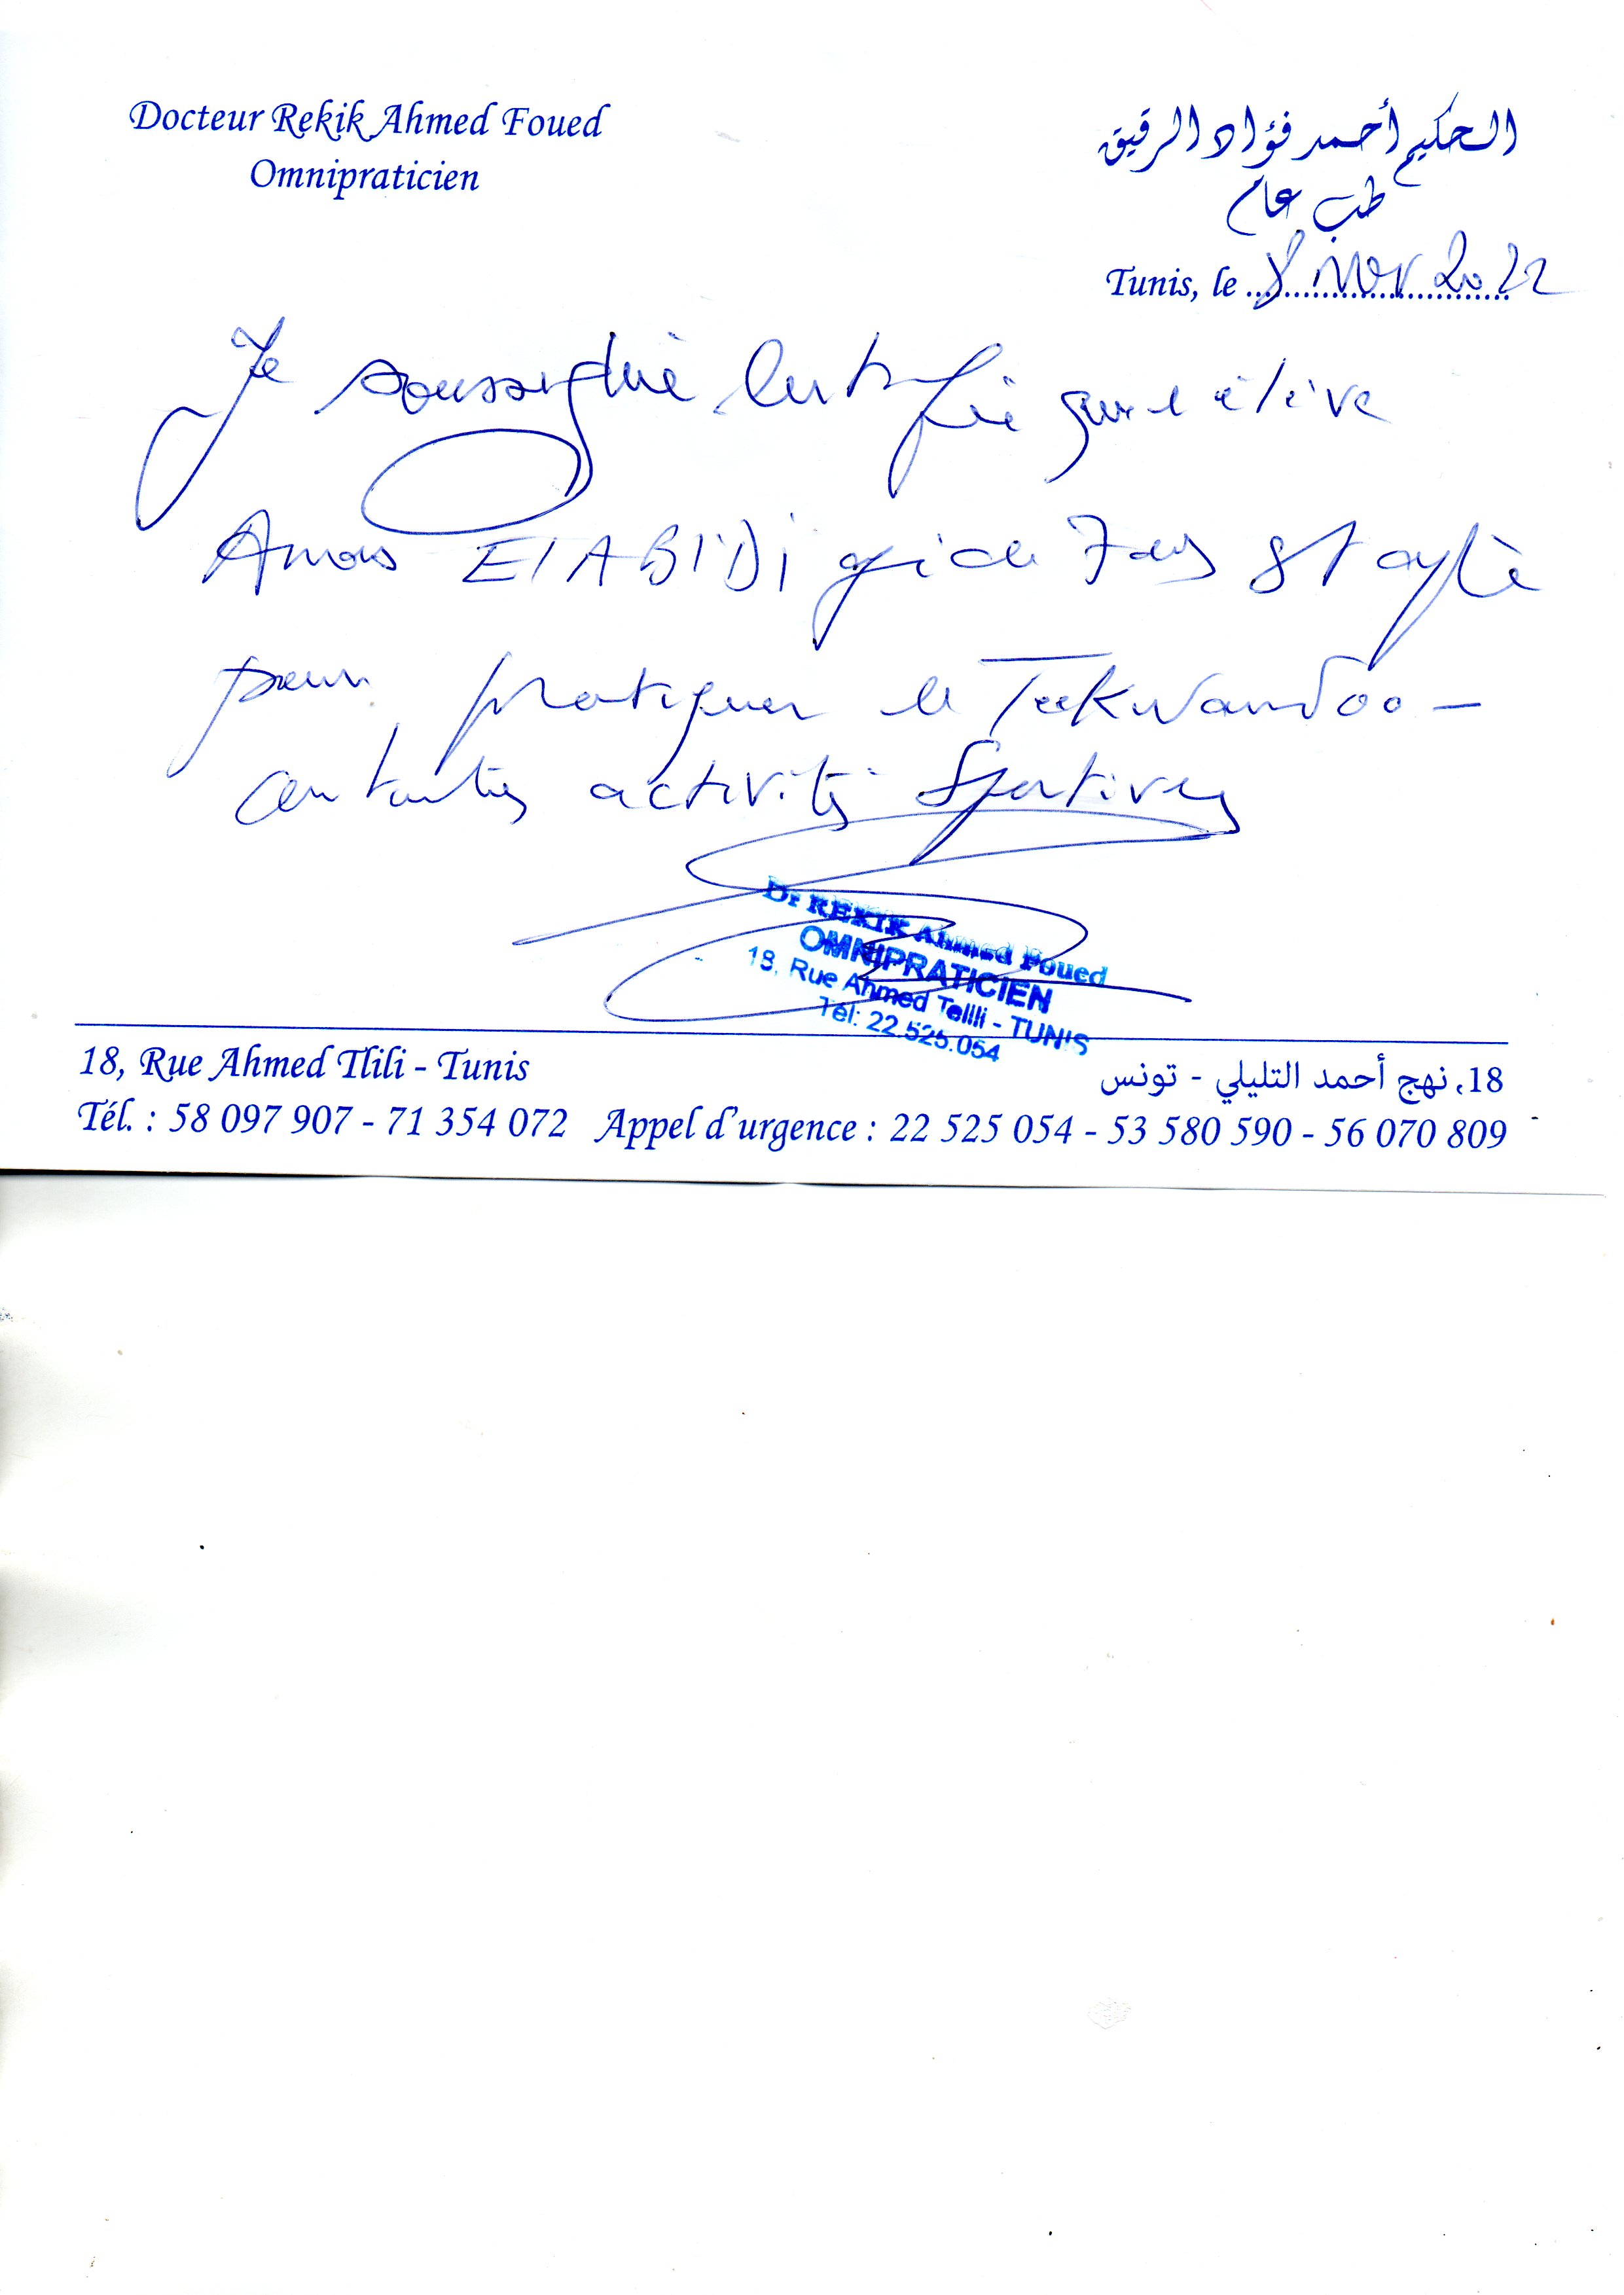 Docteur Rekik Ahmed Foued
Omnipraticien
الحكيم أحمد فؤاد الرقيق
طب عام
Tunis, le 8 Nov 2022
Je soussigné certifie que l'élève
Anas El ABIDI agé de 7 ans est apte
pour pratiquer le Taekwandoo -
toutes activités sportives
Dr REKIK Ahmed Foued
OMNIPRATICIEN
18, Rue Ahmed Tellli - TUNIS
Tél: 22.525.054
18, Rue Ahmed Tlili - Tunis
18، نهج أحمد التليلي - تونس
Tél. : 58 097 907 - 71 354 072 Appel d'urgence : 22 525 054 - 53 580 590 - 56 070 809